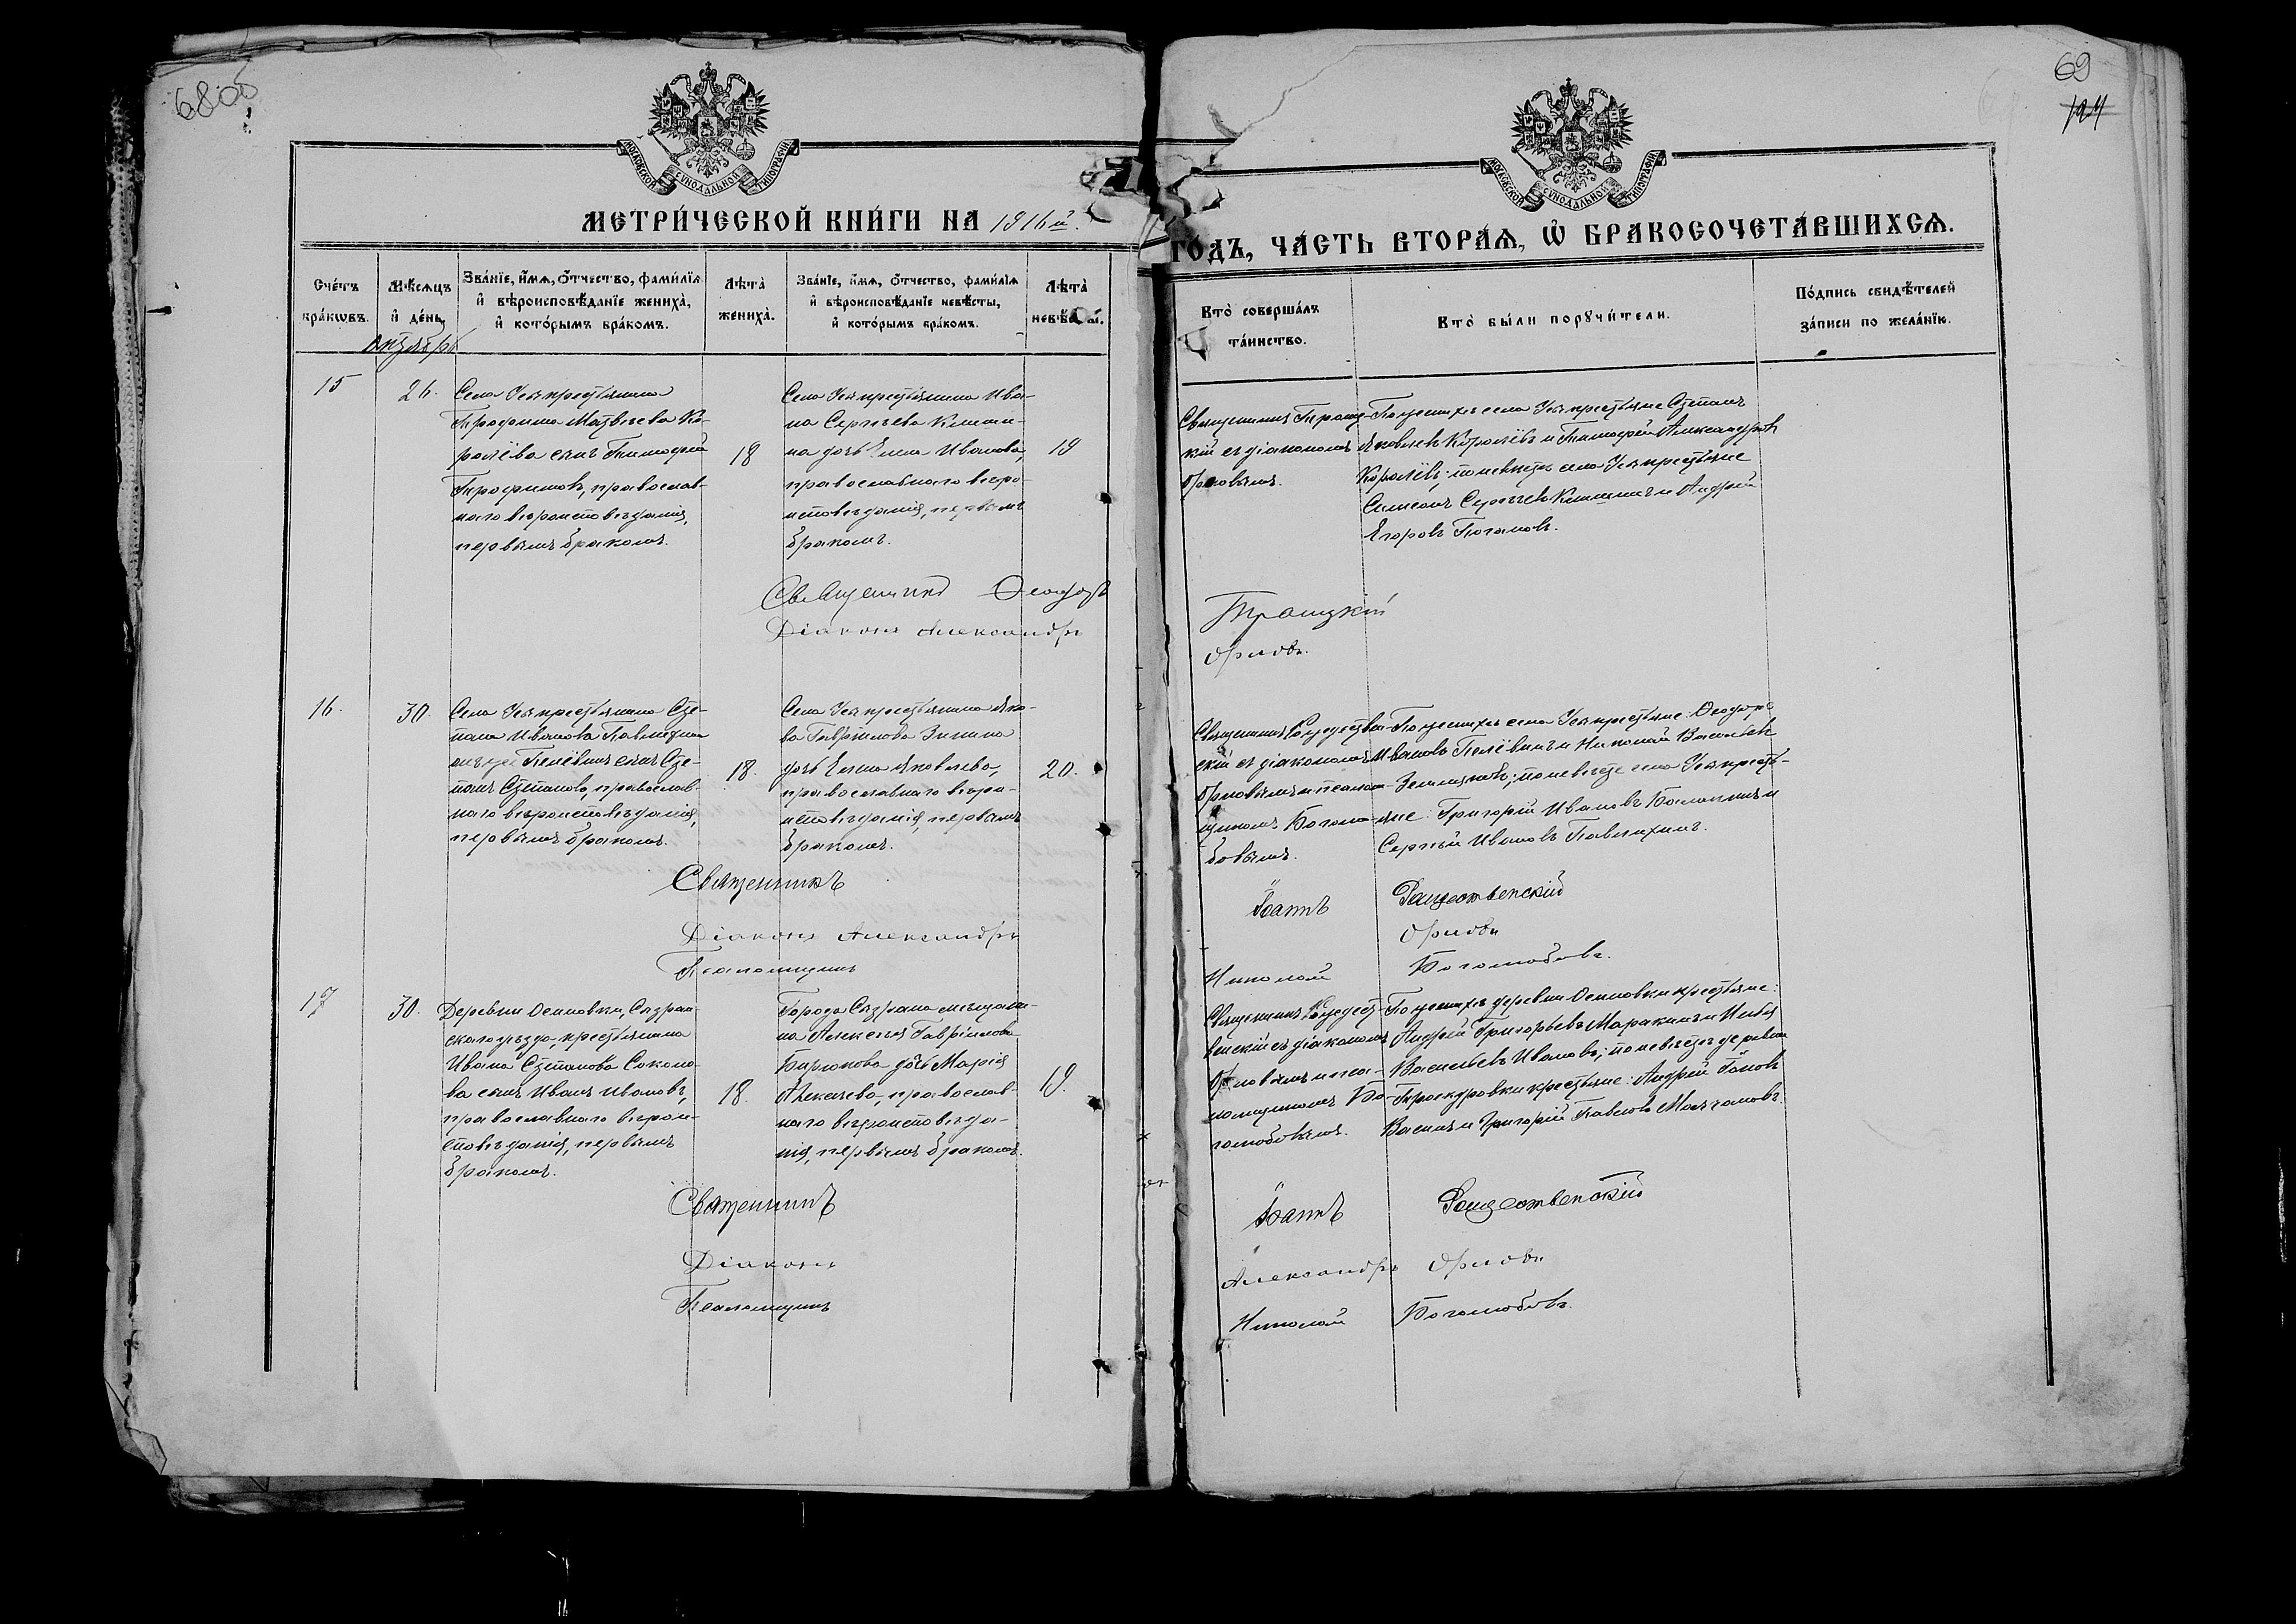 68 об
69
194
МОСКОВСКОЙ СѴНОДАЛЬНОЙ ТИПОГРАФІИ
МОСКОВСКОЙ СѴНОДАЛЬНОЙ ТИПОГРАФІИ
МЕТРИ́ЧЕСКОЙ КНИ́ГИ НА 1916й
ГО́ДЪ, ЧА́СТЬ ВТОРА́Ѧ, Ѽ БРАКОСОЧЕТА́ВШИХСѦ.
Сче́тъ бра́кѡвъ.
Мѣ́сяцъ и҆ де́нь.
Зва́нїе, и҆́мѧ, ѻ҆́тчество, фами́лїѧ и҆ вѣроисповѣ́данїе жениха̀, и҆ кото́рымъ бра́комъ.
Лѣ́та жениха̀.
Зва́нїе, и҆́мѧ, ѻ҆́тчество, фами́лїѧ и҆ вѣроисповѣ́данїе невѣ́сты, и҆ кото́рымъ бра́комъ.
Лѣ́та невѣ́сты.
Кто̀ соверша́лъ та́инство.
Кто̀ бы́ли порꙋчи́тели.
По́дпись свидѣ́телей за́писи по жела́нїю.
Октября
15
26.
Села Усы крестьянина
Трофима Матвѣева Ко-
ролёва сынъ Тимофей
Трофимовъ, православ-
наго вѣроисповѣданія,
первымъ бракомъ.
18
Села Усы крестьянина Ива-
на Сергѣева
на дочь Елена Иванова,
православнаго вѣро-
исповѣданія, первымъ
бракомъ.
19
Священникъ Троиц-
кій съ діакономъ
Орловымъ.
По женихѣ села Усы крестьяне Степанъ
Яковлевъ Королёвъ и Тимофей Александровъ
Королёвъ; по невѣстѣ села Усы крестьяне
Симеонъ Сергѣевъ и Андрей
Егоровъ
Священникъ Ѳеодоръ Троицкій
Діаконъ Александръ Орловъ.
16.
30.
Села Усы крестьянина Сте-
пана Иванова Павлихина
онъ же Пелёвинъ сынъ Сте-
панъ Степановъ, православ-
наго вѣроисповѣданія,
первымъ бракомъ.
18.
Села Усы крестьянина Яко-
ва Гаврилова Зинина
дочь Елена Яковлева,
православнаго вѣро-
исповѣданія, первымъ
бракомъ.
20.
Священникъ Рождествен-
скій съ діакономъ
Орловымъ и псалом-
щикомъ Боголю-
бовымъ.
По женихѣ села Усы крестьяне: Ѳеодоръ
Ивановъ Пелёвинъ и Николай Васильевъ
по невѣстѣ села Усы кресть-
яне: Григорій Ивановъ и
Сергѣй Ивановъ Павлихинъ.
Священникъ Іоаннъ Рождественскій
Діаконъ Александръ Орловъ
Псаломщикъ Николай Боголюбовъ.
17
30.
Деревни Осиновки, Сызран-
скаго уѣзда, крестьянина
Ивана Степанова Соколо-
ва сынъ Иванъ Ивановъ,
православнаго вѣрои-
сповѣданія, первымъ
бракомъ.
18.
Города Сызрана мѣщани-
на Алексѣя Гаврилова
Бирюкова дочь Марія
Алексѣева, православ-
наго вѣроисповѣда-
нія, первымъ бракомъ.
19.
Священникъ Рождест-
венскій съ діакономъ
Орловымъ и пса-
ломщикомъ Бо-
голюбовымъ.
По женихѣ деревни Осиновки крестьяне:
Андрей Григорьевъ Маракинъ и Илья
Васильевъ Ивановъ; по невѣстѣ деревни
крестьяне: Андрей
и Григорій Павловъ Молчановъ.
Священникъ Іоаннъ Рождественскій
Діаконъ Александръ Орловъ
Псаломщикъ Николай Боголюбовъ.